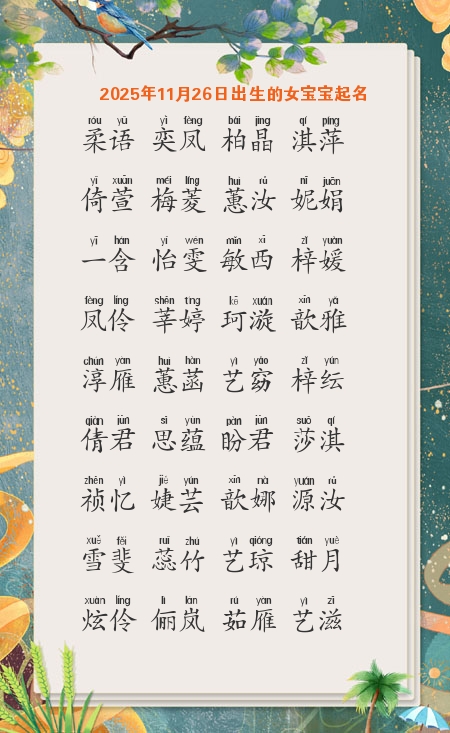 2025年11月26日出生的女宝宝起名
róu yǔ yì fèng bǎi jīng qí píng
柔语 奕凤 柏晶 淇萍
yǐ xuān méi líng huì rǔ nī juān
倚萱 梅菱 蕙汝 妮娟
yī hán yí wén mǐn xī zǐ yuàn
一含 怡雯 敏西 梓媛
fèng líng shēn tíng kē xuán xīn yǎ
凤伶 莘婷 珂漩 歆雅
chún yàn huì hàn yì yǎo zǐ yún
淳雁 蕙菡 艺窈 梓纭
qiàn jūn sī yùn pàn jūn suō qí
倩君 思蕴 盼君 莎淇
zhēn yì jié yún xīn nà yuán rǔ
祯忆 婕芸 歆娜 源汝
xuě fěi ruǐ zhú yì qióng tián yuè
雪斐 蕊竹 艺琼 甜月
xuàn líng lì lán rú yàn yì zī
炫伶 俪岚 茹雁 艺滋